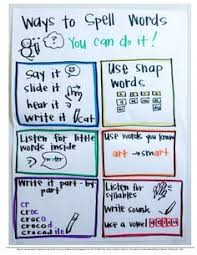 Ways to Spell Words
You can do it!
?
Say it
slide it
hear it
Write it cat
Use snap
words
Listen for little
words inside
Use words you know
art → smart
Write it part-by-
part
cr
croc
croco
crocod
crocodile
Listen for
syllables
Write sounds
use a vowel